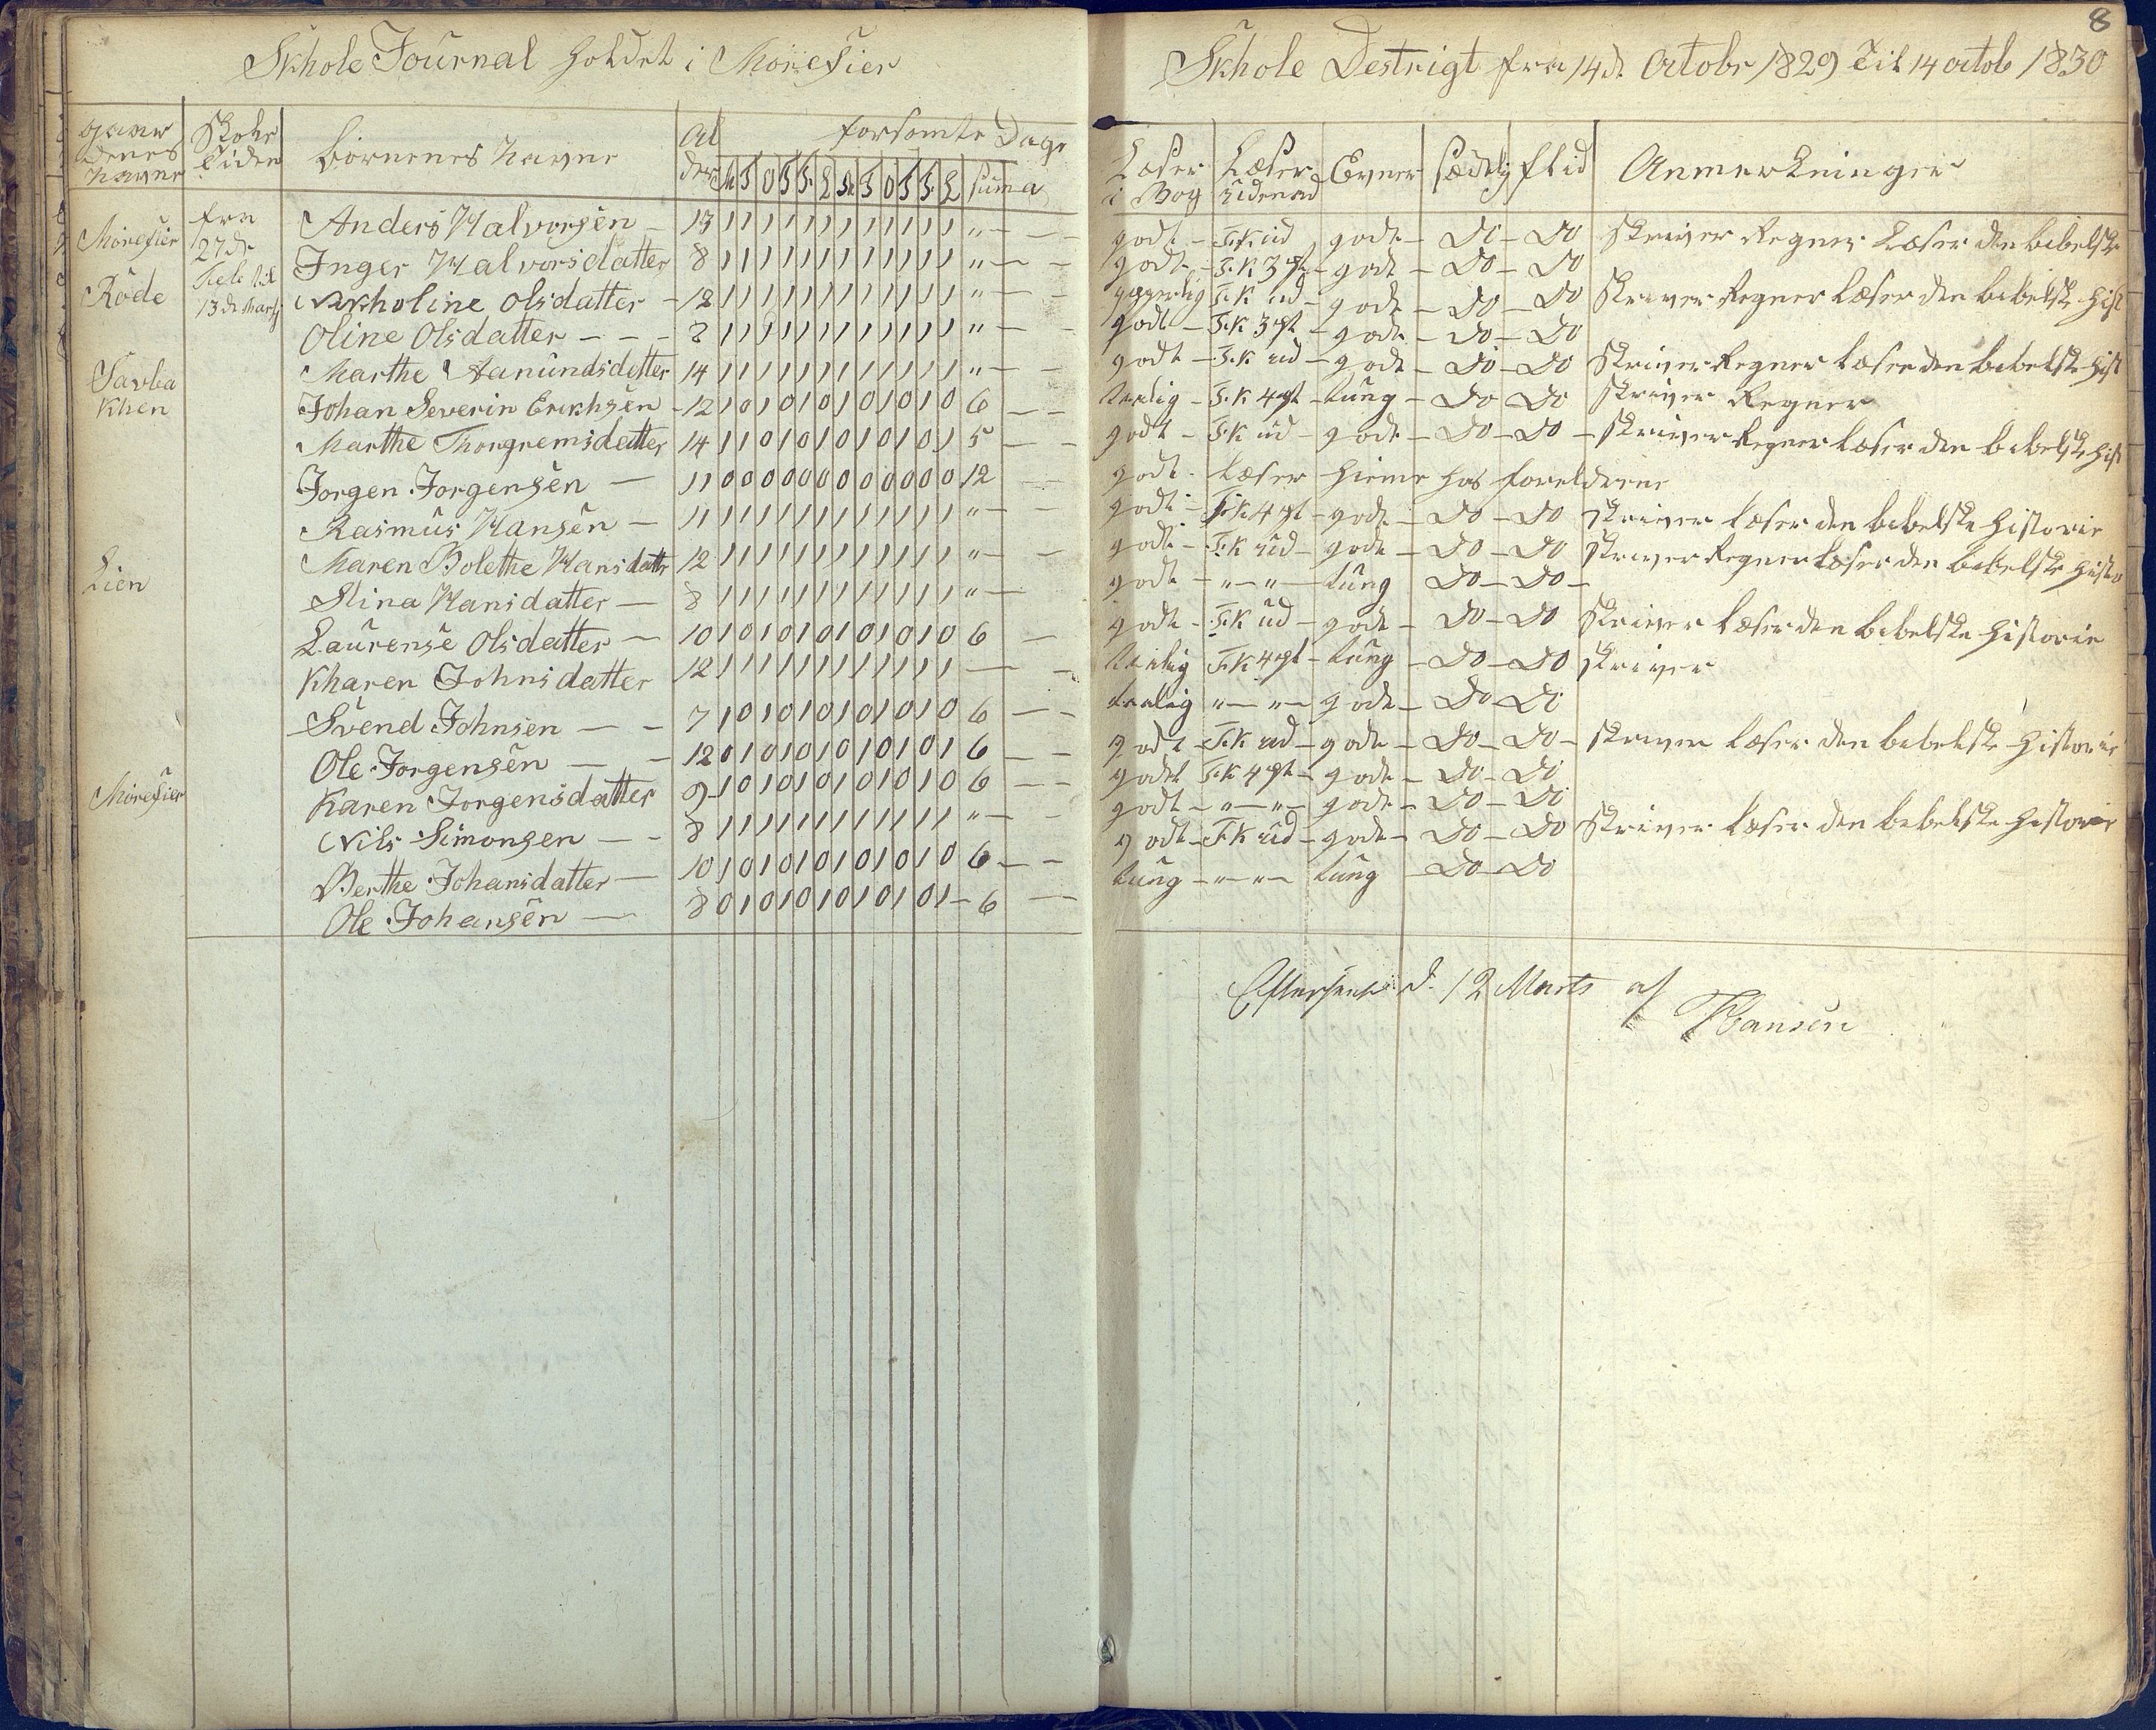 Skhole Journal holdet i Morefier
gaar denes navne | Skole Tiden | börnenes navne | Al der | forsomte Dage
M T O T F L M T O T F L | suma
Morefier | fra | Anders Halvorsen — 13 1 1 1 1 1 1 1 1 1 1 1 1 „ — —
27 de | Inger Halvorsdatter 8 1 1 1 1 1 1 1 1 1 1 1 1 „ — —
Röde | Feb til 13 de Marts | Nikholine Olsdatter — 12 1 1 1 1 1 1 1 1 1 1 1 1 „ — —
Oline Olsdatter — — — 8 1 1 1 1 1 1 1 1 1 1 1 1 „ — —
Savba | Marthe Aanundsdatter 14 1 1 1 1 1 1 1 1 1 1 1 1 „ — —
khen | Johan Severin Erikhsen — 12 1 0 1 0 1 0 1 0 1 0 1 0 6 — —
Marthe Thorgremsdatter 14 1 1 0 1 0 1 0 1 0 1 0 1 5 — —
Jorgen Jorgensen — 11 0 0 0 0 0 0 0 0 0 0 0 0 12
Rasmus Hansen — 11 1 1 1 1 1 1 1 1 1 1 1 1 „ — —
Maren Bolethe Hansdattr 12 1 1 1 1 1 1 1 1 1 1 1 1 „ — —
Lien | Stina Hansdatter — 8 1 1 1 1 1 1 1 1 1 1 1 1 „ —
Laurense Olsdatter — 10 1 0 1 0 1 0 1 0 1 0 1 0 6 —
Kharen Johnsdatter 12 1 1 1 1 1 1 1 1 1 1 1 1 — —
Svend Johnsen — — 7 1 0 1 0 1 0 1 0 1 0 1 0 6 — —
Ole Jorgensen — — 12 0 1 0 1 0 1 0 1 0 1 0 1 6 — —
Morefier | Karen Jorgensdatter 9 1 0 1 0 1 0 1 0 1 0 1 0 6 — —
Nils Simonsen — — 8 1 1 1 1 1 1 1 1 1 1 1 1 „ — —
Berthe Johansdatter — 10 1 0 1 0 1 0 1 0 1 0 1 0 6 — —
Ole Johansen — 8 0 1 0 1 0 1 0 1 0 1 0 1 — 6 —
8
Skhole Destrigt fra 14 d. Octobr 1829 Til 14 octob 1830
Læser i Bog | Læser udenad | Evner | sædelig | flid | Anmerkninger
godt — F.K ud godt — Do — Do skriver Regner Læser den bibelske
godt — F.K 3 pt — godt — Do — Do
F.K ud — godt — Do — Do skriver Regner Læser den bibelske hist
godt — F.K 3 pt — godt — Do — Do
godt — F.K ud — godt — Do — Do skriver Regner læser den bibelske hist
taalig — F.K 4 pt — tung — Do — Do skriver Regner
godt — F.K ud — godt — Do — Do — skriver Regner læser den bibelske hist
godt — læser hieme hos foreldrene
godt — F.K 4 pt — godt — Do — Do skriver læser den bibelske historie
godt — F.K ud — godt — Do — Do skriver Regner læser den bibelske histo
godt — „ — „ — tung Do — Do —
godt — F.K ud — godt — Do — Do skriver læser den bibelske historie
taalig F.K 4 pt — tung — Do — Do skriver
taalig „ — „ — godt — Do — Do
godt — F.K ud — godt — Do — Do — skriver læser den bibelske historie
godt F.K 4 pt — godt — Do — Do
godt — „ — „ — godt — Do — Do
godt — F.K ud — godt — Do — Do skriver læser den bibelske historie
tung — „ — „ — tung — Do — Do
Efterseet d. 12 Marts af
Hansen